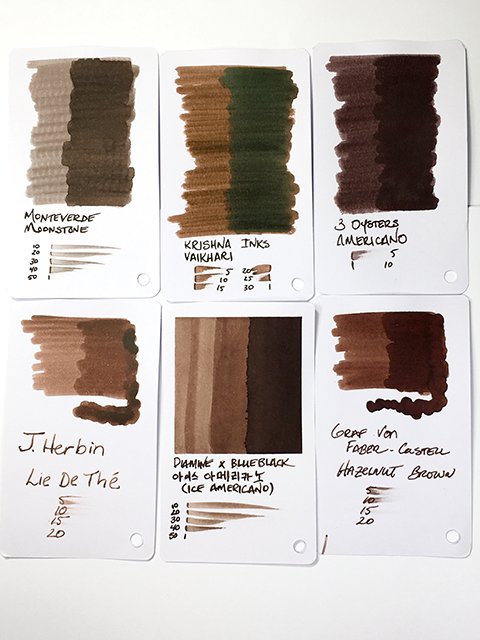 MONTEVERDE
MOONSTONE
10
20
30
40
50
KRISHNA INKS
VAIKHARI
5 20
10 25
15 30
3 OYSTERS
AMERICANO
1 5
10
J. Herbin
Lie De Thé
5
10
15
20
DIAMINE x BLUEBLACK
아이스 아메리카노
(ICE AMERICANO)
10
20
30
40
50
GRAF VON
FABER-CASTELL
HAZELNUT BROWN
5
10
15
20